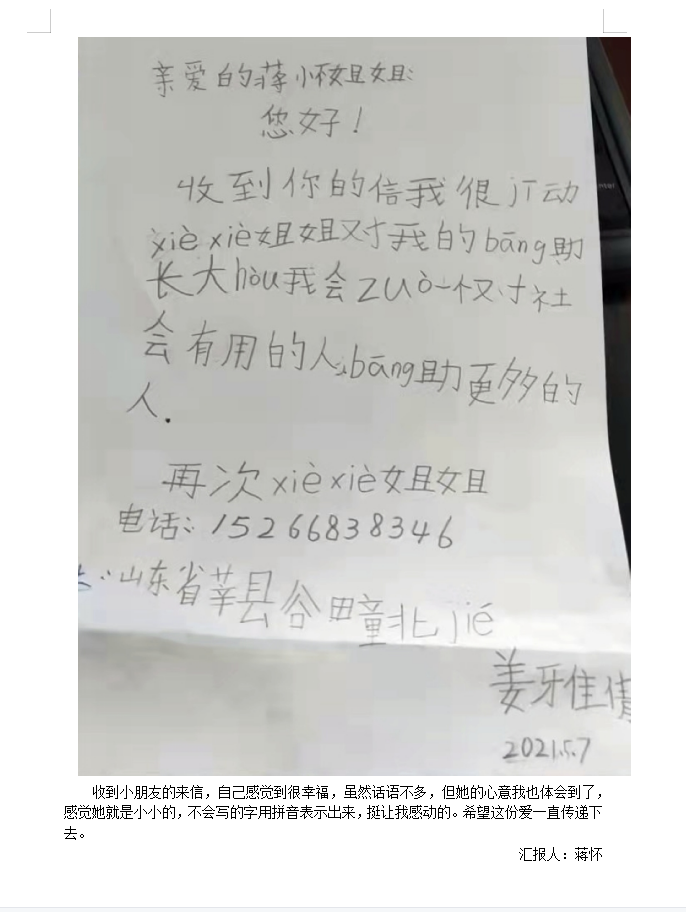 亲爱的蒋小怀姐姐:
您好!
收到你的信我很jī动
xiè xiè姐姐对我的bāng助
长大hòu我会zuò一个对社
会有用的人,bāng助更多的
人.
再次xièxiè姐姐
电话:15266838346
山东省莘县谷疃北jié
姜雅倩
2021.5.7
收到小朋友的来信,自己感觉到很幸福,虽然话语不多,但她的心意我也体会到了,
感觉她就是小小的,不会写的字用拼音表示出来,挺让我感动的。希望这份爱一直传递下
去。
汇报人:蒋怀